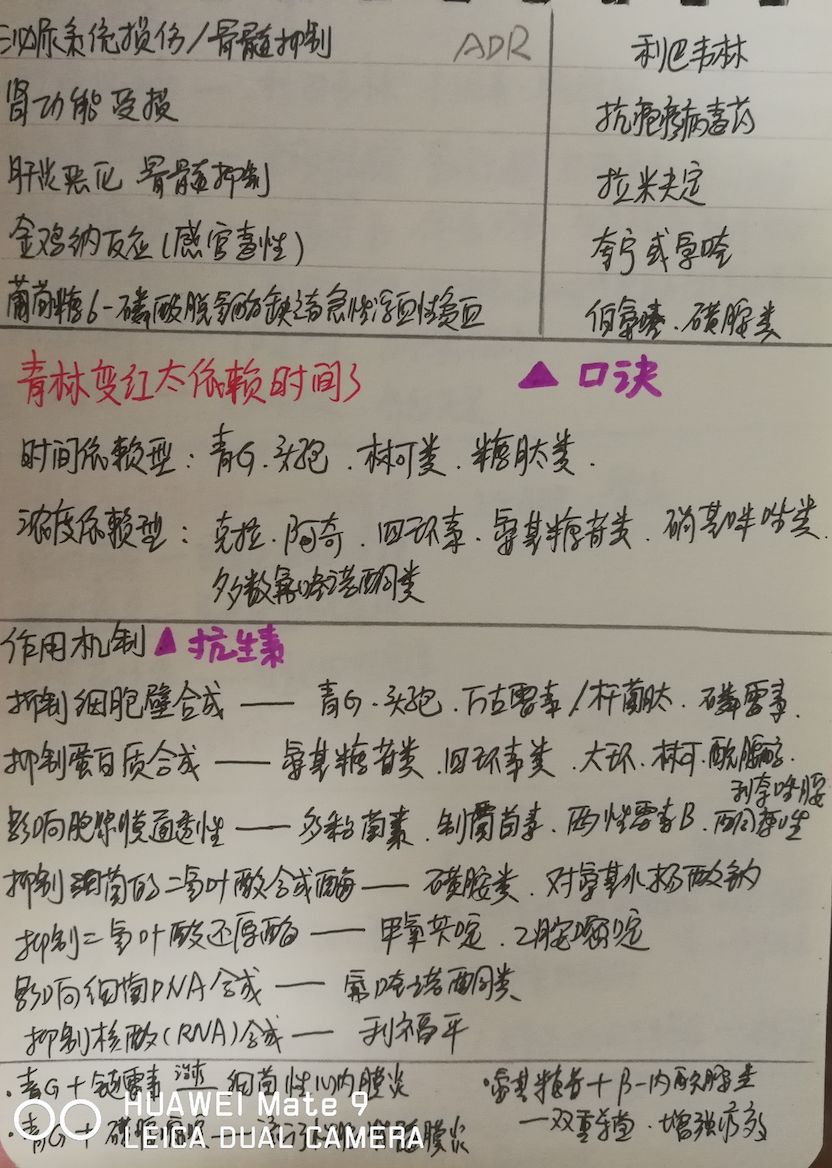 泌尿系统损伤/骨髓抑制 ADR 利巴韦林
肾功能受损 抗疱疹病毒药
肝炎恶化 骨髓抑制 拉米夫定
金鸡纳反应(感官毒性) 奎宁或氯喹
葡萄糖6-磷酸脱氢酶缺乏急性溶血性贫血 伯氨喹、磺胺类
青林变红太依赖时间了 ▲口诀
时间依赖型：青G、头孢、林可类、糖肽类.
浓度依赖型：克拉、阿奇、四环素、氨基糖苷类、硝基咪唑类.
多数氟喹诺酮类
作用机制▲抗生素
抑制细胞壁合成——青G、头孢、万古霉素/杆菌肽、磷霉素.
抑制蛋白质合成——氨基糖苷类、四环素类、大环、林可、酰胺醇.
利奈唑胺
影响胞浆膜通透性——多黏菌素、制霉菌素、两性霉素B、
抑制细菌的二氢叶酸合成酶——磺胺类、对氨基水杨酸钠
抑制二氢叶酸还原酶——甲氧苄啶、乙胺嘧啶
影响细菌DNA合成——氟喹诺酮类
抑制核酸(RNA)合成——利福平
·青G+链霉素 治疗 细菌性心内膜炎 ·氨基糖苷+β-内酰胺类
·青G+磺胺嘧啶 膜炎 —双重杀菌、增强疗效
HUAWEI Mate 9
LEICA DUAL CAMERA